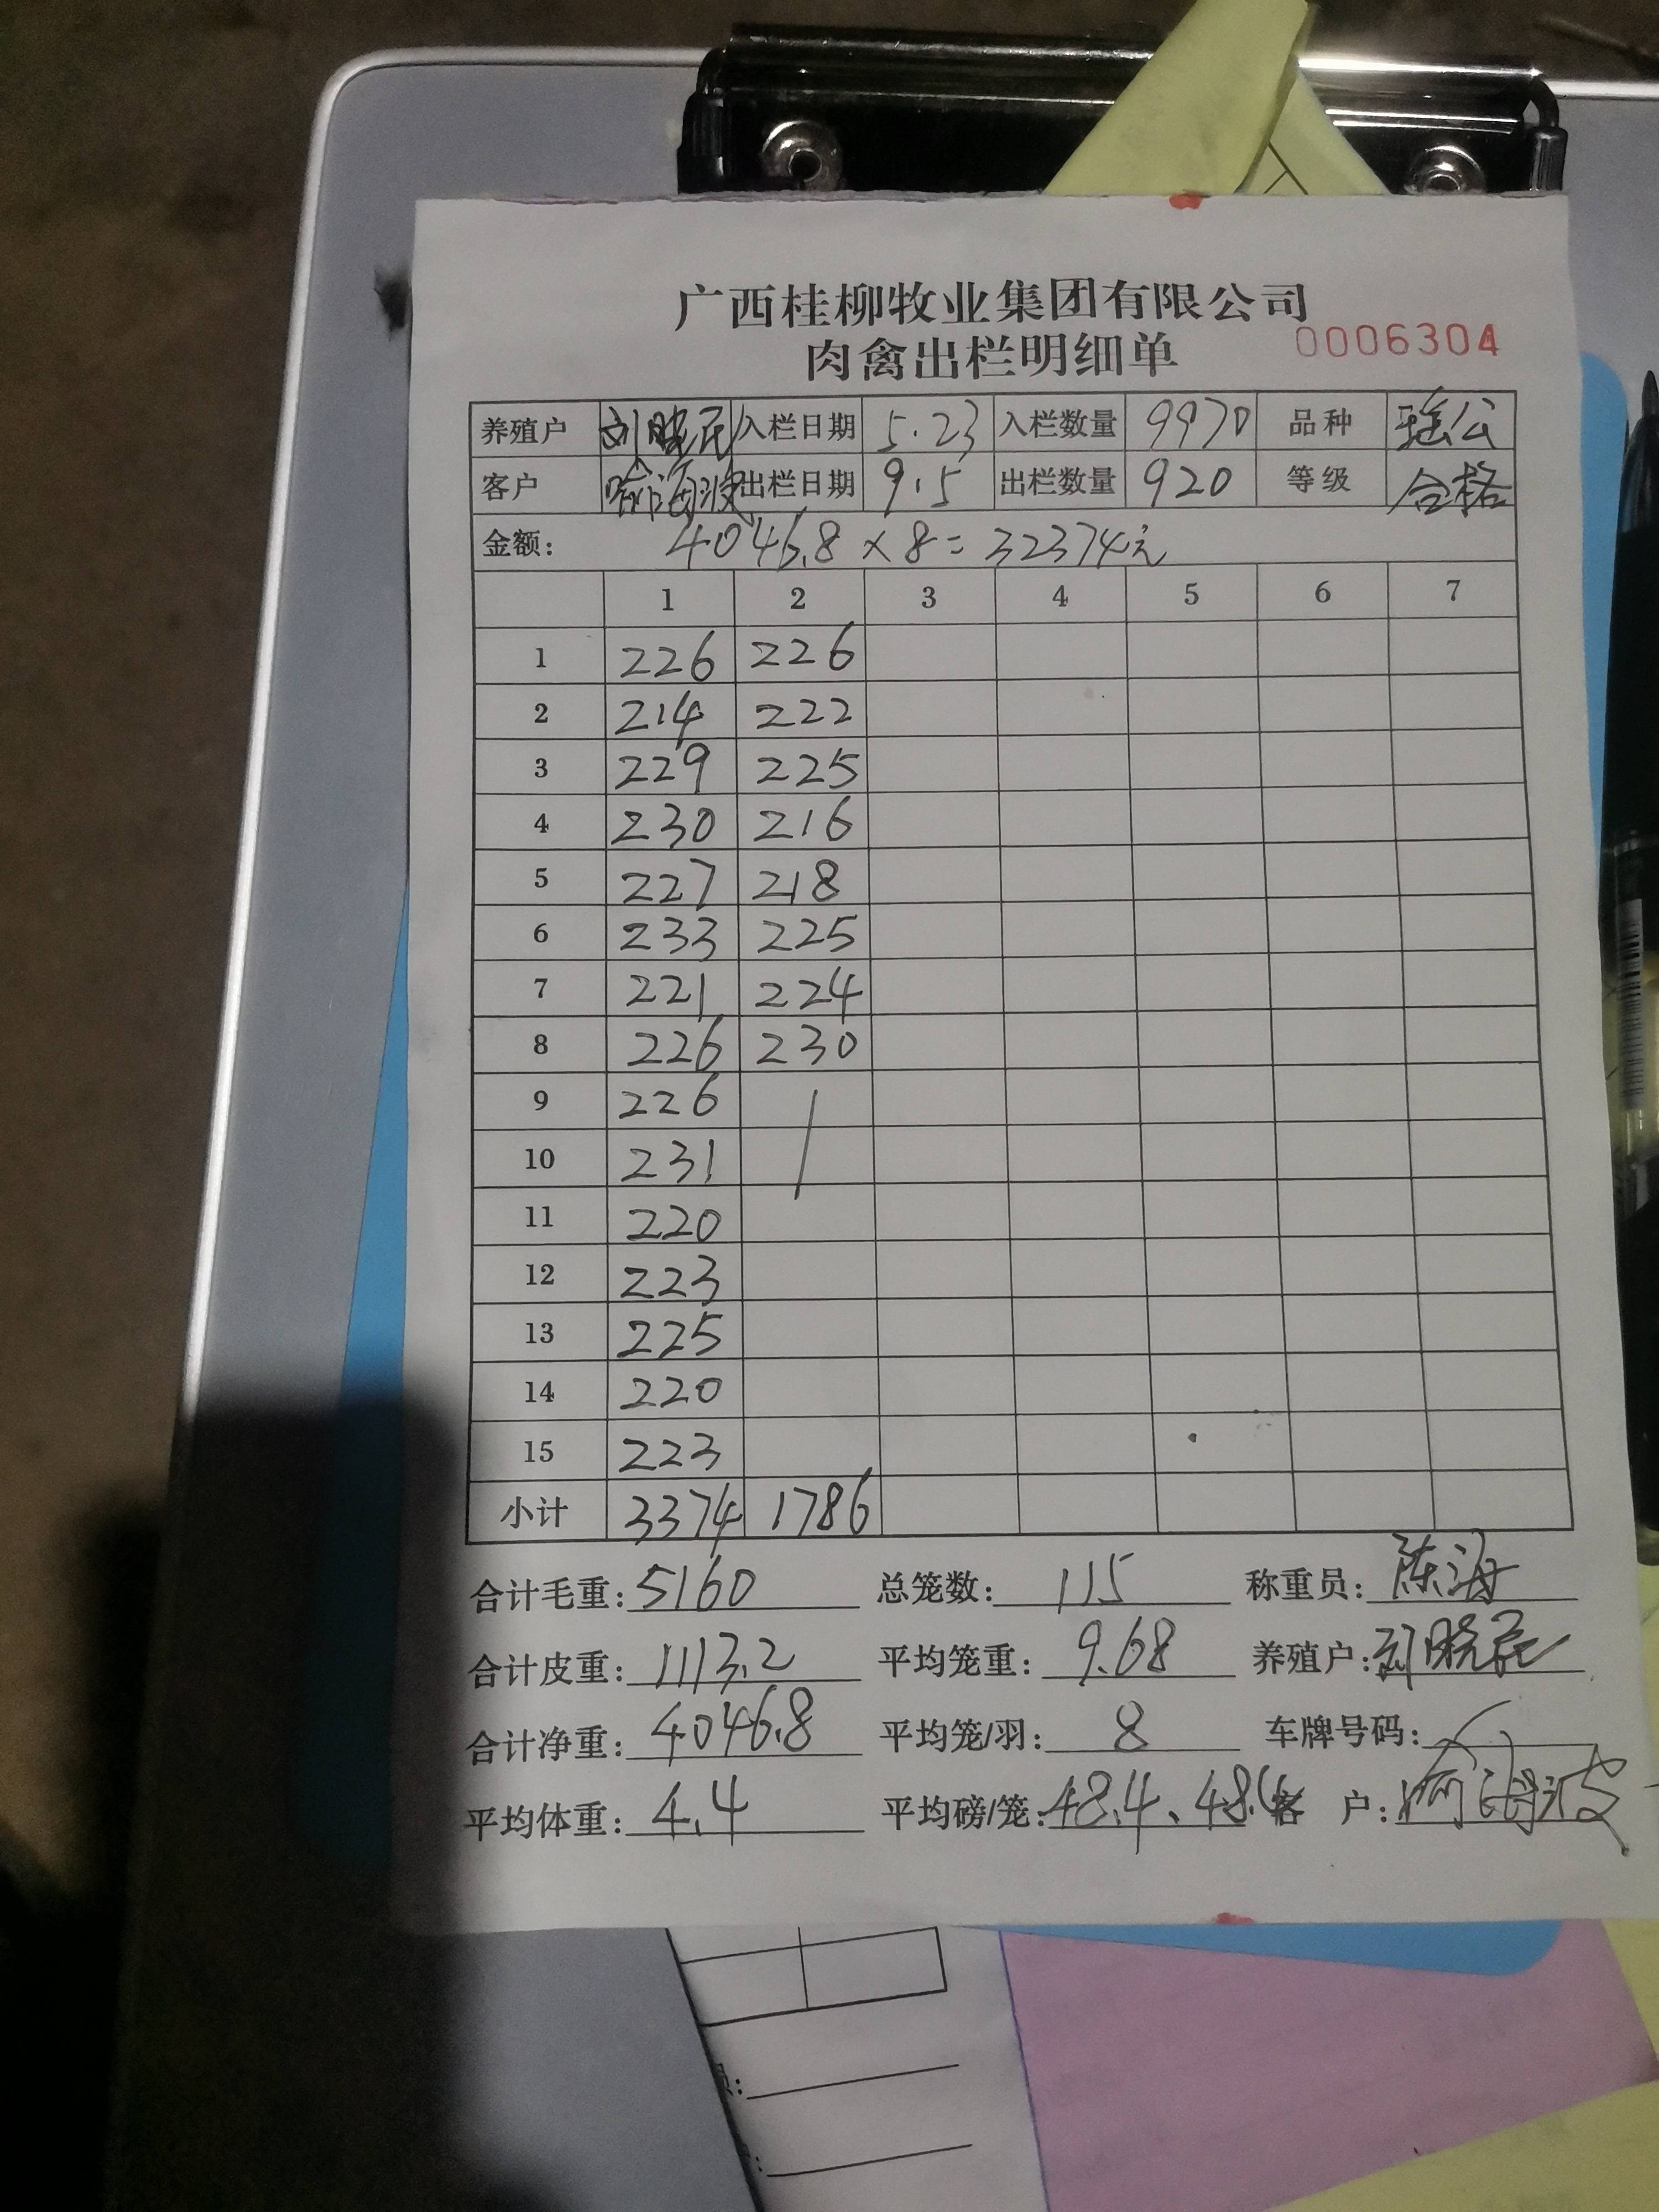 广西桂柳牧业集团有限公司
肉禽出栏明细单 0006304
养殖户 刘晓民 入栏日期 5.23 入栏数量 9970 品种 瑶公
客户 喻海波 出栏日期 9.5 出栏数量 920 等级 合格
金额: 4046.8×8=32374元
1 2 3 4 5 6 7
1 226 226
2 214 222
3 229 225
4 230 216
5 227 218
6 233 225
7 221 224
8 226 230
9 226 /
10 231
11 220
12 223
13 225
14 220
15 223
小计 3374 1786
合计毛重: 5160 总笼数: 115 称重员: 陈海
合计皮重: 1113.2 平均笼重: 9.68 养殖户: 刘晓民
合计净重: 4046.8 平均笼/羽: 8 车牌号码:
平均体重: 4.4 平均磅/笼: 48.4、48.4 客 户: 喻海波